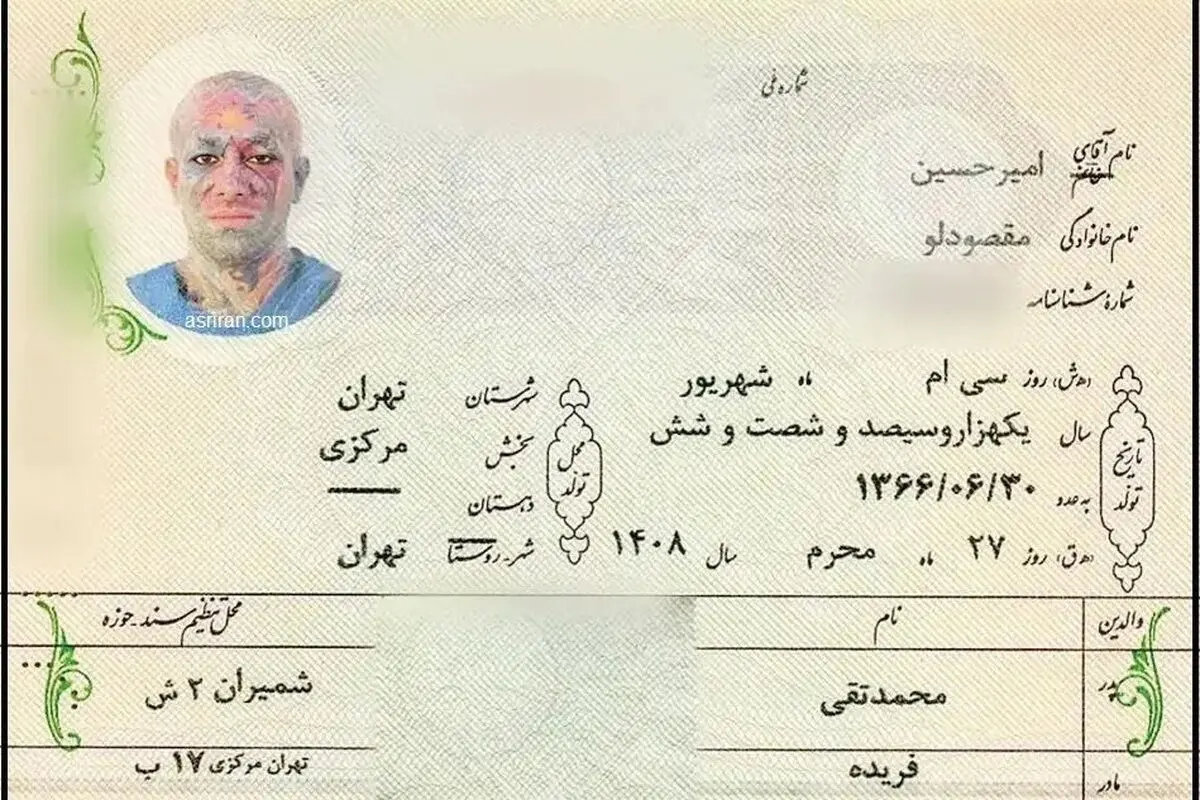 شماره ملی
نام آقای خانم امیرحسین
نام خانوادگی مقصودلو
شمارهٔ شناسنامه
تاریخ تولد
(ه‍.ش) روز سی ام ماه شهریور
سال یکهزاروسیصد و شصت و شش
به عدد ۱۳۶۶/۰۶/۳۰
(ه‍.ق) روز ۲۷ ماه محرم سال ۱۴۰۸
محل تولد
شهرستان تهران
بخش مرکزی
دهستان
شهر-روستا تهران
asriran.com
والدین نام محل تنظیم سند-حوزه
پدر محمدتقی شمیران ۲ ش
مادر فریده تهران مرکزی ۱۷ ب